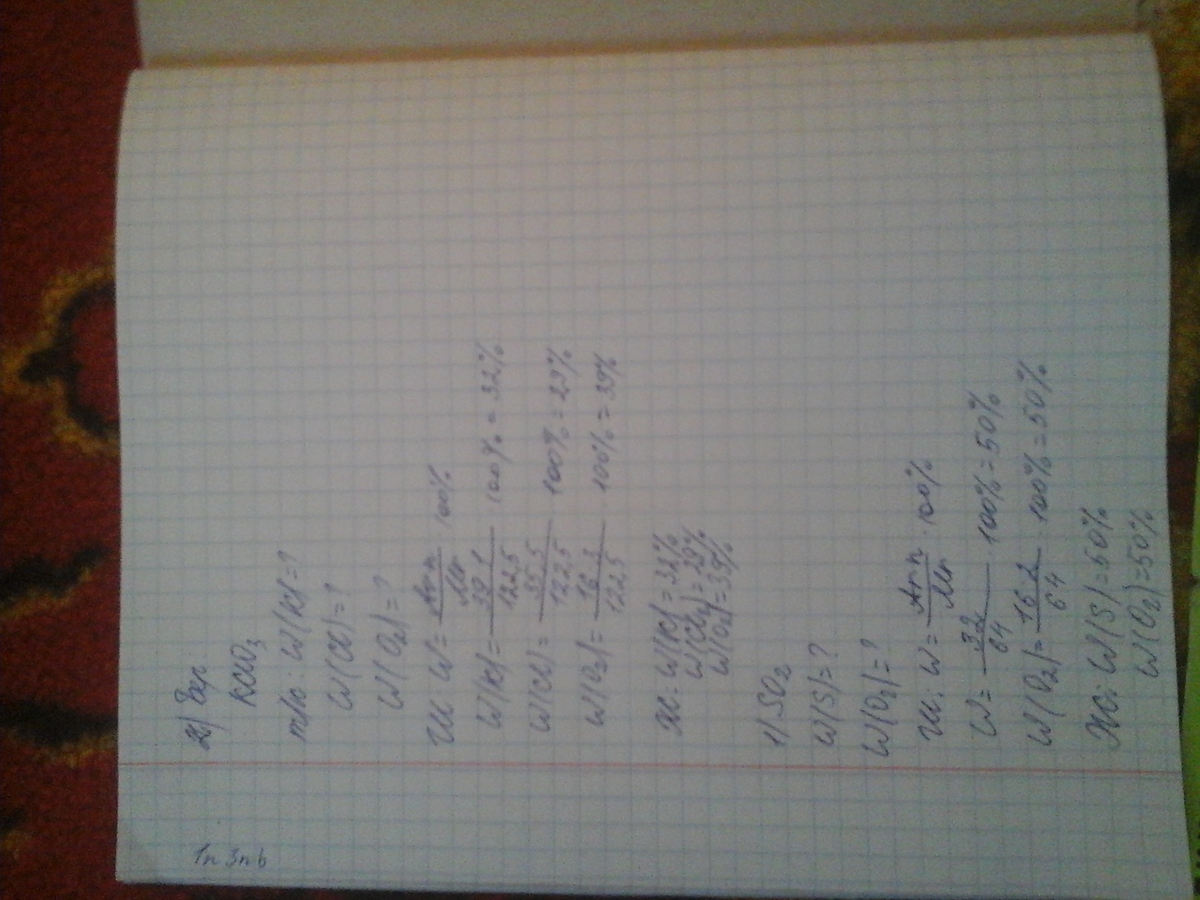 2) Бер:
KClO₃
т/к: W(K)=?
W(Cl)=?
W(O₂)=?
Ш: W = Ar·n / Mr · 100%
W(K) = 39·1 / 122,5 · 100% = 32%
W(Cl) = 35,5 / 122,5 · 100% = 29%
W(O₃) = 16·3 / 122,5 · 100% = 39%
Ж: W(K) = 32%
W(Cl₂) = 29%
W(O₂) = 39%
1) SO₂
W(S)=?
W(O₂)=?
Ш: W = Ar·n / Mr · 100%
W = 32 / 64 · 100% = 50%
W(O₂) = 16·2 / 64 · 100% = 50%
Ж: W(S) = 50%
W(O₂) = 50%